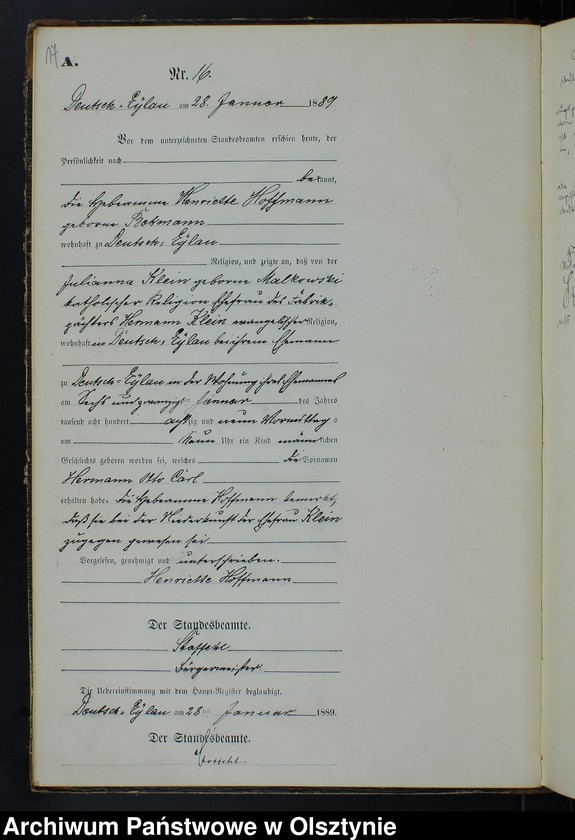 17
A.
Nr. 16.
Deutsch-Eylau am 28. Januar 1889
Vor dem unterzeichneten Standesbeamten erschien heute, der
Persönlichkeit nach
bekannt,
die Hebeamme Henriette Hoffmann
geborne Bockmann
wohnhaft zu Deutsch-Eylau
Religion, und zeigte an, daß von der
Julianna Klein geborne Malkowski
katholischer Religion Ehefrau des Fabrik-
pächters Hermann Klein evangelischer Religion,
wohnhaft in Deutsch-Eylau bei ihrem Ehemann
zu Deutsch-Eylau in der Wohnung ihres Ehemannes
am Sechs und zwanzigsten Januar des Jahres
tausend acht hundert achtzig und neun Vormittags
um Neun Uhr ein Kind männlichen
Geschlechts geboren worden sei, welches die Vornamen
Hermann Otto Carl
erhalten habe. die Hebeamme Hoffmann bemerkt,
daß sie bei der Niederkunft der Ehefrau Klein
zugegen gewesen sei
Vorgelesen, genehmigt und unterschrieben.
Henriette Hoffmann
Der Standesbeamte.
Staffehl
Bürgermeister
Die Uebereinstimmung mit dem Haupt-Register beglaubigt.
Deutsch-Eylau am 28ten Januar 1889.
Der Standesbeamte.
Staffehl
Archiwum Państwowe w Olsztynie